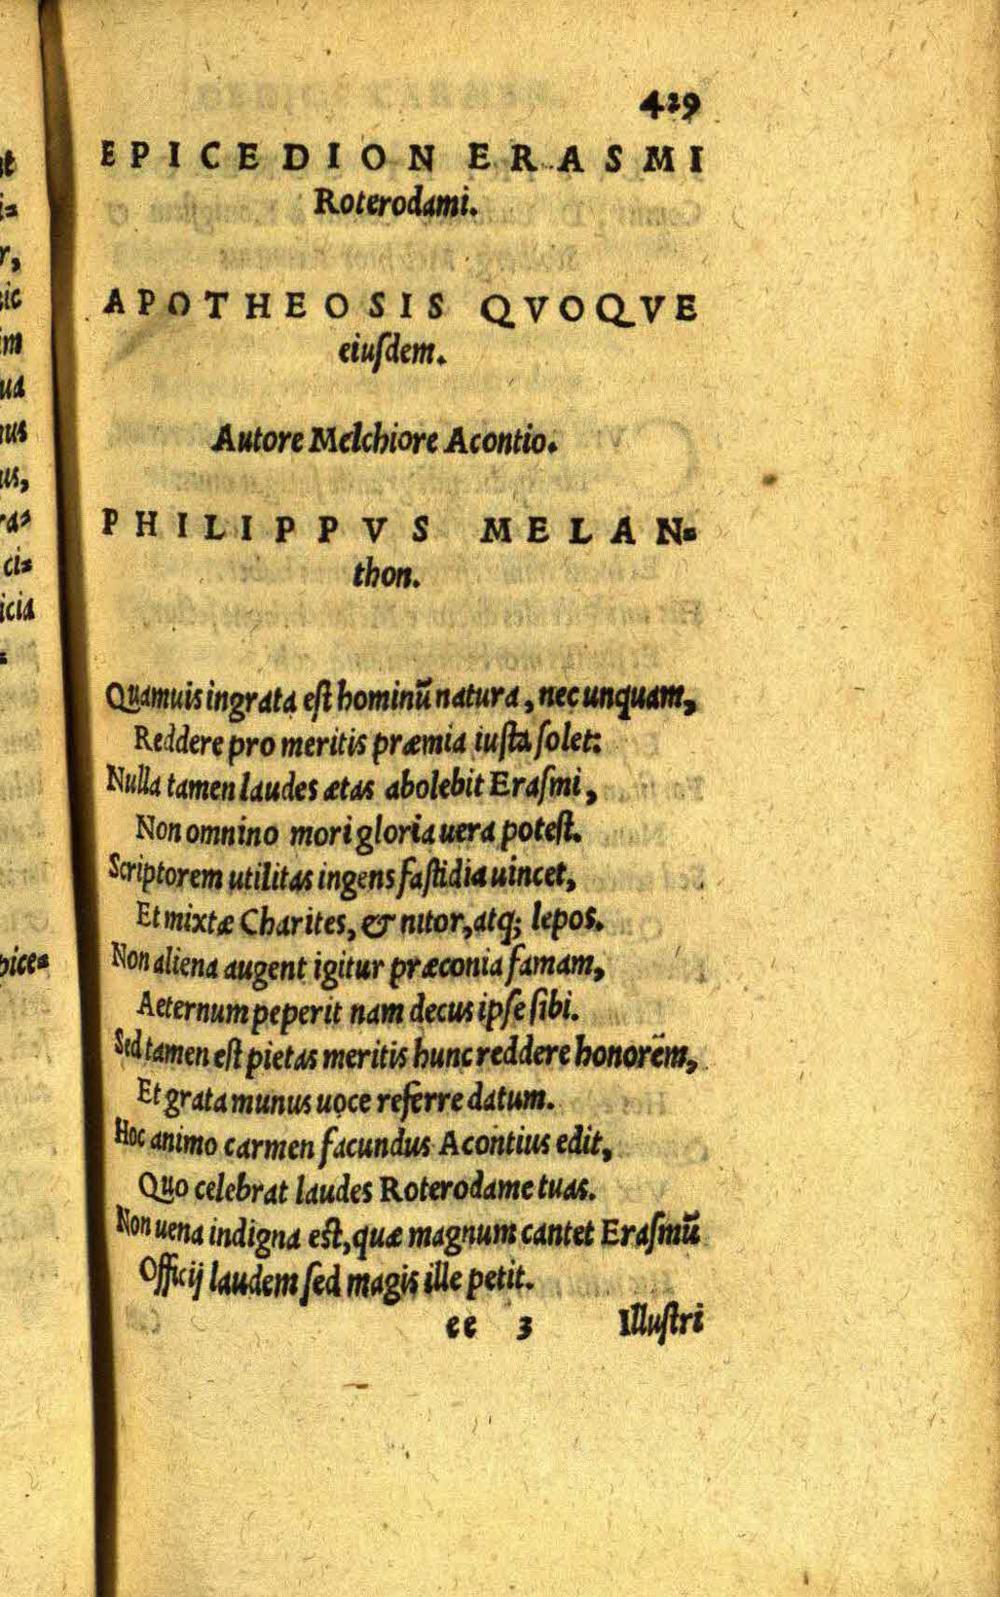 429
EPICEDION ERASMI
Roterodami.
APOTHEOSIS QVOQVE
eiuſdem.
Autore Melchiore Acontio.
PHILIPPVS MELAN⸗
thon.
Quamuis ingrata eſt hominũ natura, nec unquam,
Reddere pro meritis præmia iuſta ſolet:
Nulla tamen laudes ætas abolebit Eraſmi,
Non omnino mori gloria uera poteſt.
Scriptorem utilitas ingens faſtidia uincet,
Et mixtæ Charites, & nitor, atq; lepos.
Non aliena augent igitur præconia famam,
Aeternum peperit nam decus ipſe ſibi.
Sed tamen eſt pietas meritis hunc reddere honorem,
Et grata munus uoce referre datum.
Hoc animo carmen facundus Acontius edit,
Quo celebrat laudes Roterodame tuas.
Non uena indigna eſt, quæ magnum cantet Eraſmũ
Officij laudem ſed magis ille petit.
ee 3 Illuſtri